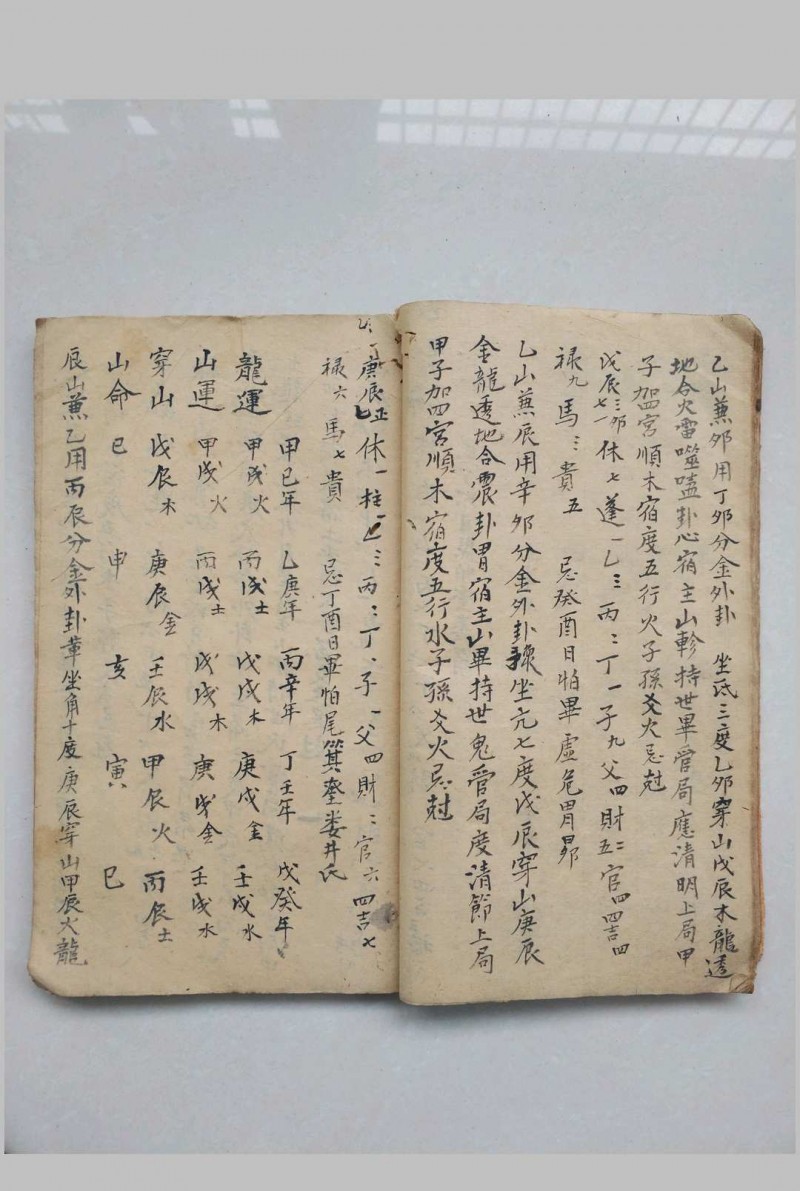 乙山兼夘用丁夘分金外卦 坐氐三度乙夘穿山戊辰木龍透
地合火雷噬嗑卦心宿主山軫持世畢管局應清明上局甲
子加四宮順木宿度五行火子孫爻火忌尅
戊辰三夘七一休七蓬一乙三丙二丁一子九父四財五二官四四吉四
禄九馬三貴五 忌癸酉日怕畢虛危胃昴
乙山兼辰用辛夘分金外卦 坐亢七度戊辰穿山庚辰
金龍透地合震卦胃宿主山畢持世鬼管局度清節上局
甲子加四宮順木宿度五行水子孫爻火忌尅
庚辰 休一柱一乙三丙二丁、子一父四財二官六四吉七
禄六馬七貴 忌丁酉日畢怕尾箕奎婁井氐
甲巳年 乙庚年 丙辛年 丁壬年 戊癸年
龍運 甲戌火 丙戌土 戊戌木 庚戌金 壬戌水
山運 甲戌火 丙戌土 戊戌木 庚戌金 壬戌水
穿山 戊辰木 庚辰金 壬辰水 甲辰火 丙辰土
山命 巳 申 亥 寅 巳
辰山兼乙用丙辰分金外卦革坐角十度庚辰穿山甲辰火龍